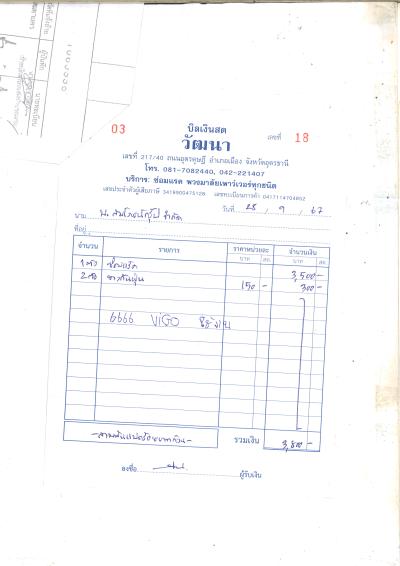 03
บิลเงินสด
เลขที่ 18
วัฒนา
เลขที่ 217/40 ถนนอุดรดุษฎี อำเภอเมือง จังหวัดอุดรธานี
โทร. 081-7082440, 042-221407
บริการ: ซ่อมแรค พวงมาลัยเพาเวอร์ทุกชนิด
เลขประจำตัวผู้เสียภาษี เลขทะเบียนการค้า
วันที่ 28 / 9 / 67
นาม
ที่อยู่
จำนวน รายการ ราคาหน่วยละ จำนวนเงิน
บาท สต. บาท สต.
1 ตัว ซ่อมแร็ค 3,500 -
2 ตัว ยางกันฝุ่น 150 - 300 -
6666 VIGO
-สามพันแปดร้อยบาทถ้วน- รวมเงิน 3,800 -
ลงชื่อ ผู้รับเงิน